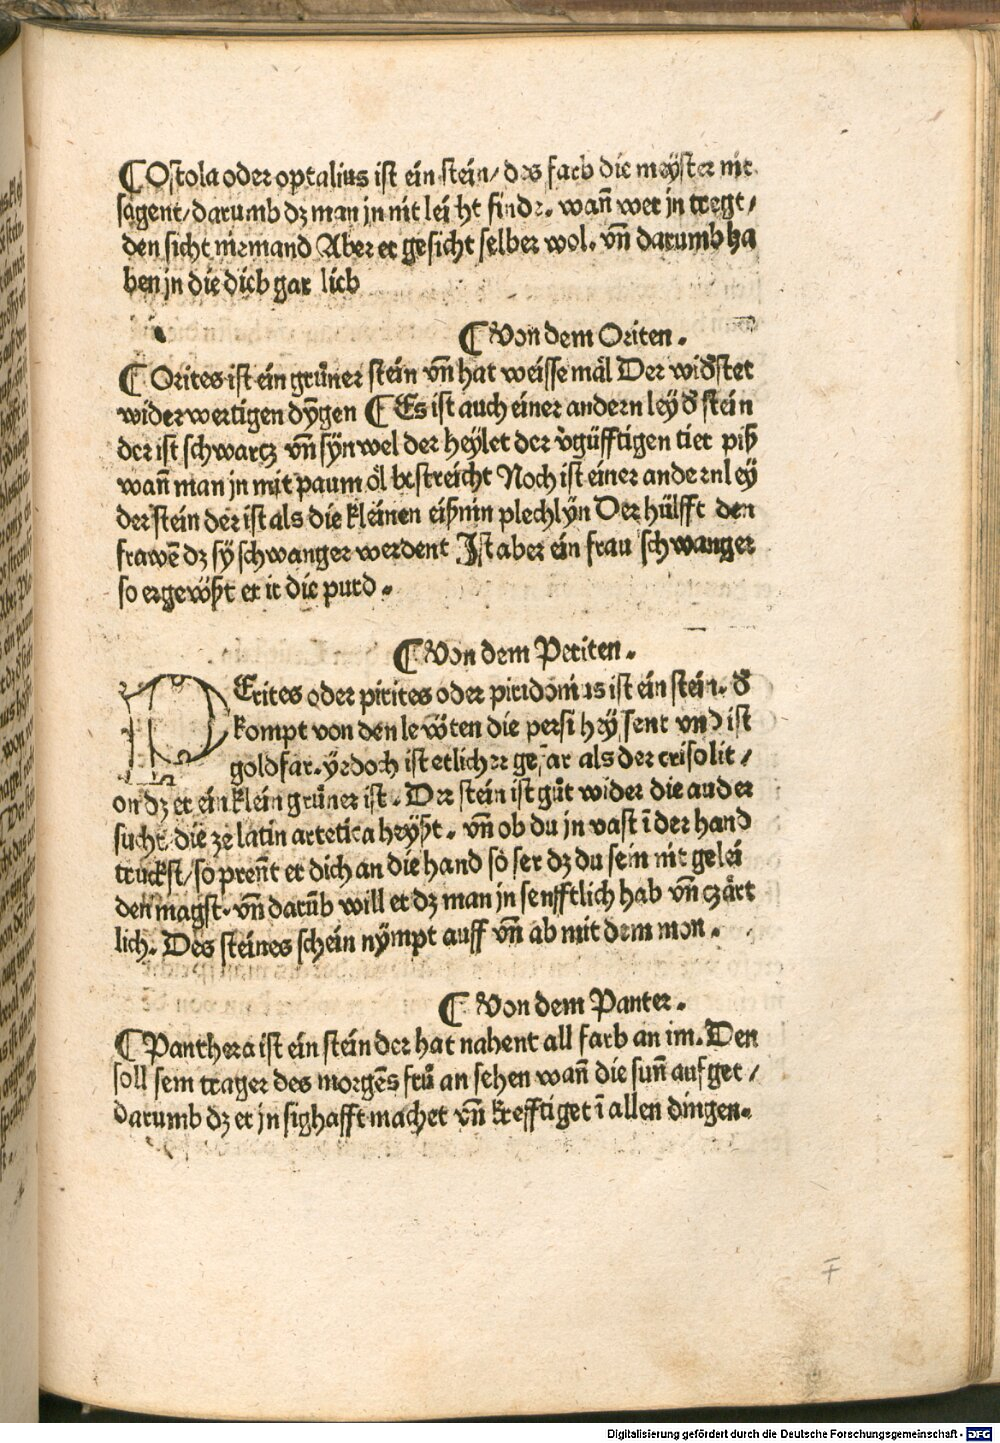 ¶ Ostola oder optalius ist ein stein/ des farb die meÿster nit
sagent/ darumb dz man jn nit leicht findt. wañ wer jn tregt/
den sicht niemand Aber er gesicht selber wol. vñ darumb ha
ben jn die dieb gar lieb
¶ Von dem Oriten.
¶ Orites ist ein grüner stein vñ hat weisse mäl Der widstet
widerwertigen dÿngen ¶ Es ist auch einer andern leÿ d̕ stein
der ist schwarcz vñ sÿnwel der heÿlet der v̕güfftigen tier piß
wañ man jn mit paumöl bestreicht Noch ist einer andernleÿ
der stein der ist als die kleinen eißnin plechlÿn Der hülfft den
frawẽ dz sÿ schwanger werdent Ist aber ein frau schwanger
so ergewßt er ir die purd.
¶ Von dem Periten.
PErites oder pirites oder piridonius ist ein stein. d̕
kompt von den lewten die persi heÿssent vnd ist
goldfar. ÿedoch ist etlicher gefar als der crisolit/
on dz er ein klein grüner ist. Der stein ist gůt wider die ander
sucht/ die ze latin artetica heÿßt. vñ ob du jn vast ĩ der hand
truckst/ so preñt er dich an die hand so ser dz du sein nit gelei
den magst. vñ darũb will er dz man jn senfftlich hab vñ czärt
lich. Des steines schein nÿmpt auff vñ ab mit dem mon.
¶ Von dem Panter.
¶ Panthera ist ein stein der hat nahent all farb an im. Den
soll sein trager des morgẽs frů an sehen wañ die suñ auf get/
darumb dz er jn sighafft machet vñ krefftiget ĩ allen dingen.
F
Digitalisierung gefördert durch die Deutsche Forschungsgemeinschaft - DFG